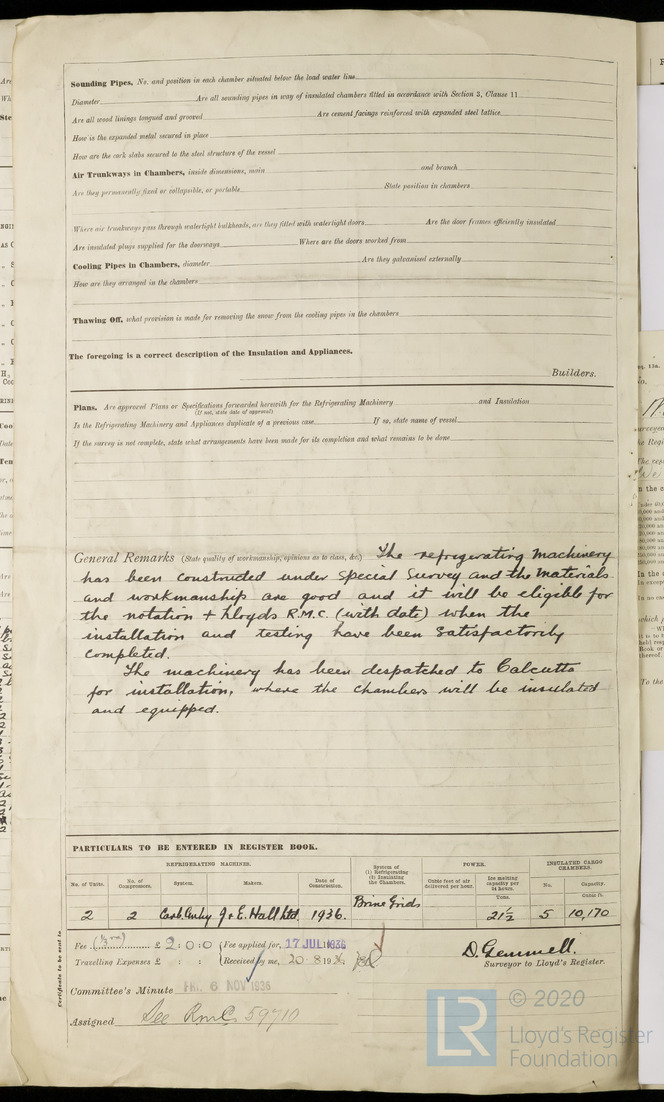 Sounding Pipes, No. and position in each chamber situated below the load water line
Diameter Are all sounding pipes in way of insulated chambers fitted in accordance with Section 3, Clause 11
Are all wood linings tongued and grooved Are cement facings reinforced with expanded steel lattice
How is the expanded metal secured in place
How are the cork slabs secured to the steel structure of the vessel
Air Trunkways in Chambers, inside dimensions, main and branch
Are they permanently fixed or collapsible, or portable State position in chambers
Where air trunkways pass through watertight bulkheads, are they fitted with watertight doors Are the door frames efficiently insulated
Are insulated plugs supplied for the doorways Where are the doors worked from
Cooling Pipes in Chambers, diameter Are they galvanised externally
How are they arranged in the chambers
Thawing Off, what provision is made for removing the snow from the cooling pipes in the chambers
The foregoing is a correct description of the Insulation and Appliances.
Builders.
Plans. Are approved Plans or Specifications forwarded herewith for the Refrigerating Machinery and Insulation
(If not, state date of approval)
Is the Refrigerating Machinery and Appliances duplicate of a previous case If so, state name of vessel
If the survey is not complete, state what arrangements have been made for its completion and what remains to be done
General Remarks (State quality of workmanship, opinions as to class, &c.) The refrigerating machinery
has been constructed under Special Survey and the materials
and workmanship are good and it will be eligible for
the notation + Lloyds R.M.C. (with date) when the
installation and testing have been satisfactorily
completed.
The machinery has been despatched to Calcutta
for installation, where the chambers will be insulated
and equipped.
PARTICULARS TO BE ENTERED IN REGISTER BOOK.
REFRIGERATING MACHINES. System of (1) Refrigerating (2) Insulating the Chambers. POWER. INSULATED CARGO CHAMBERS.
No. of Units. No. of Compressors. System. Makers. Date of Construction. Cubic feet of air delivered per hour. Ice melting capacity per 24 hours. No. Capacity.
Tons. Cubic ft.
2 2 Carb. Anhy J & E. Hall Ltd 1936. Brine Grids 21½ 5 10,170
Fee (⅓rd) £ 2 : 0 : 0 Fee applied for, 17 JUL 1936
Travelling Expenses £ : : Received by me, 20.8.1936
D. Gemmell.
Surveyor to Lloyd's Register.
Committee's Minute FRI. 6 NOV 1936
Assigned See Rmc. 59710
Certificate to be sent to
LR © 2020
Lloyd's Register
Foundation